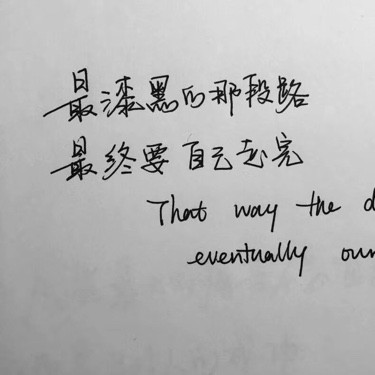 最漆黑的那段路
最终要自己走完
That way the
eventually